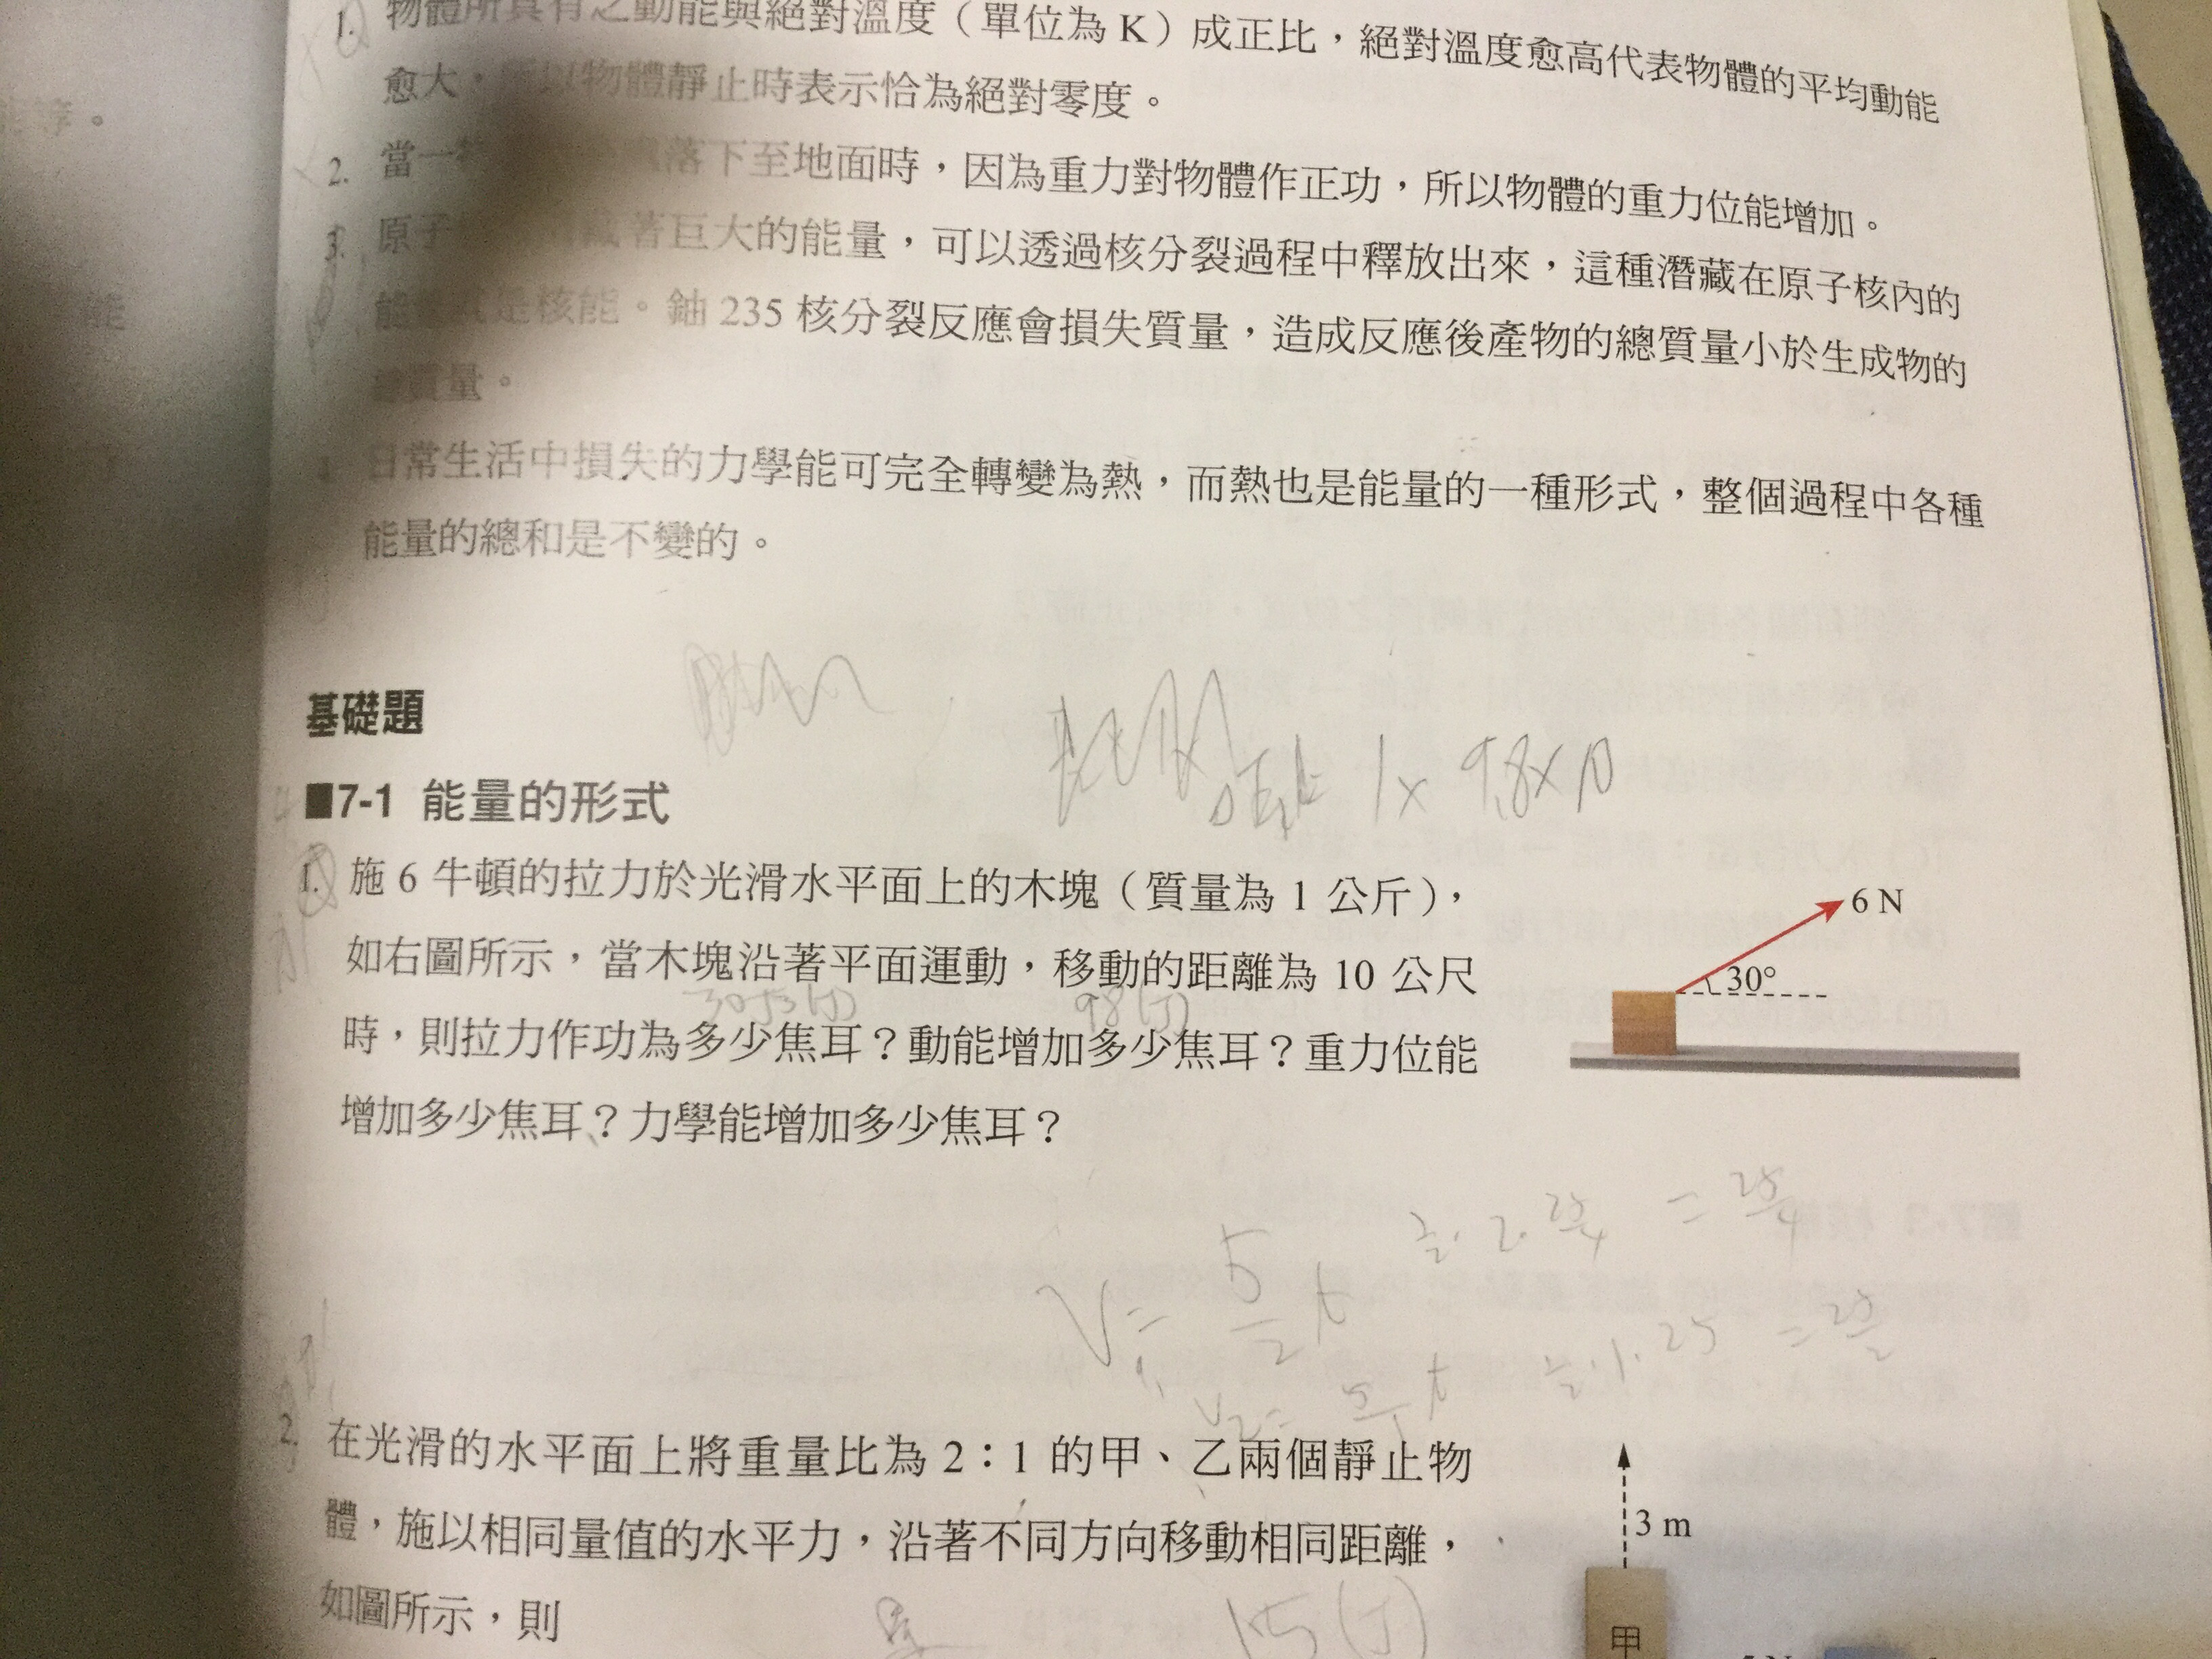 1. 物體所具有之動能與絕對溫度（單位為 K）成正比，絕對溫度愈高代表物體的平均動能
愈大，所以物體靜止時表示恰為絕對零度。
2. 當一 落下至地面時，因為重力對物體作正功，所以物體的重力位能增加。
3. 原子 藏著巨大的能量，可以透過核分裂過程中釋放出來，這種潛藏在原子核內的
能 是核能。鈾 235 核分裂反應會損失質量，造成反應後產物的總質量小於生成物的
總質量。
日常生活中損失的力學能可完全轉變為熱，而熱也是能量的一種形式，整個過程中各種
能量的總和是不變的。
能
基礎題
1 × 9.8 × 10
■7-1 能量的形式
1. 施 6 牛頓的拉力於光滑水平面上的木塊（質量為 1 公斤），
如右圖所示，當木塊沿著平面運動，移動的距離為 10 公尺
30√3 (J) 98 (J)
時，則拉力作功為多少焦耳？動能增加多少焦耳？重力位能
增加多少焦耳？力學能增加多少焦耳？
6 N
30°
1/2 · 2 · 25/4 = 25/4
V₁ = 5/2 t
1/2 · 1 · 25 = 25/2
V₂ = 5/1 t
2. 在光滑的水平面上將重量比為 2：1 的甲、乙兩個靜止物
體，施以相同量值的水平力，沿著不同方向移動相同距離，
如圖所示，則
15 (J)
3 m
甲